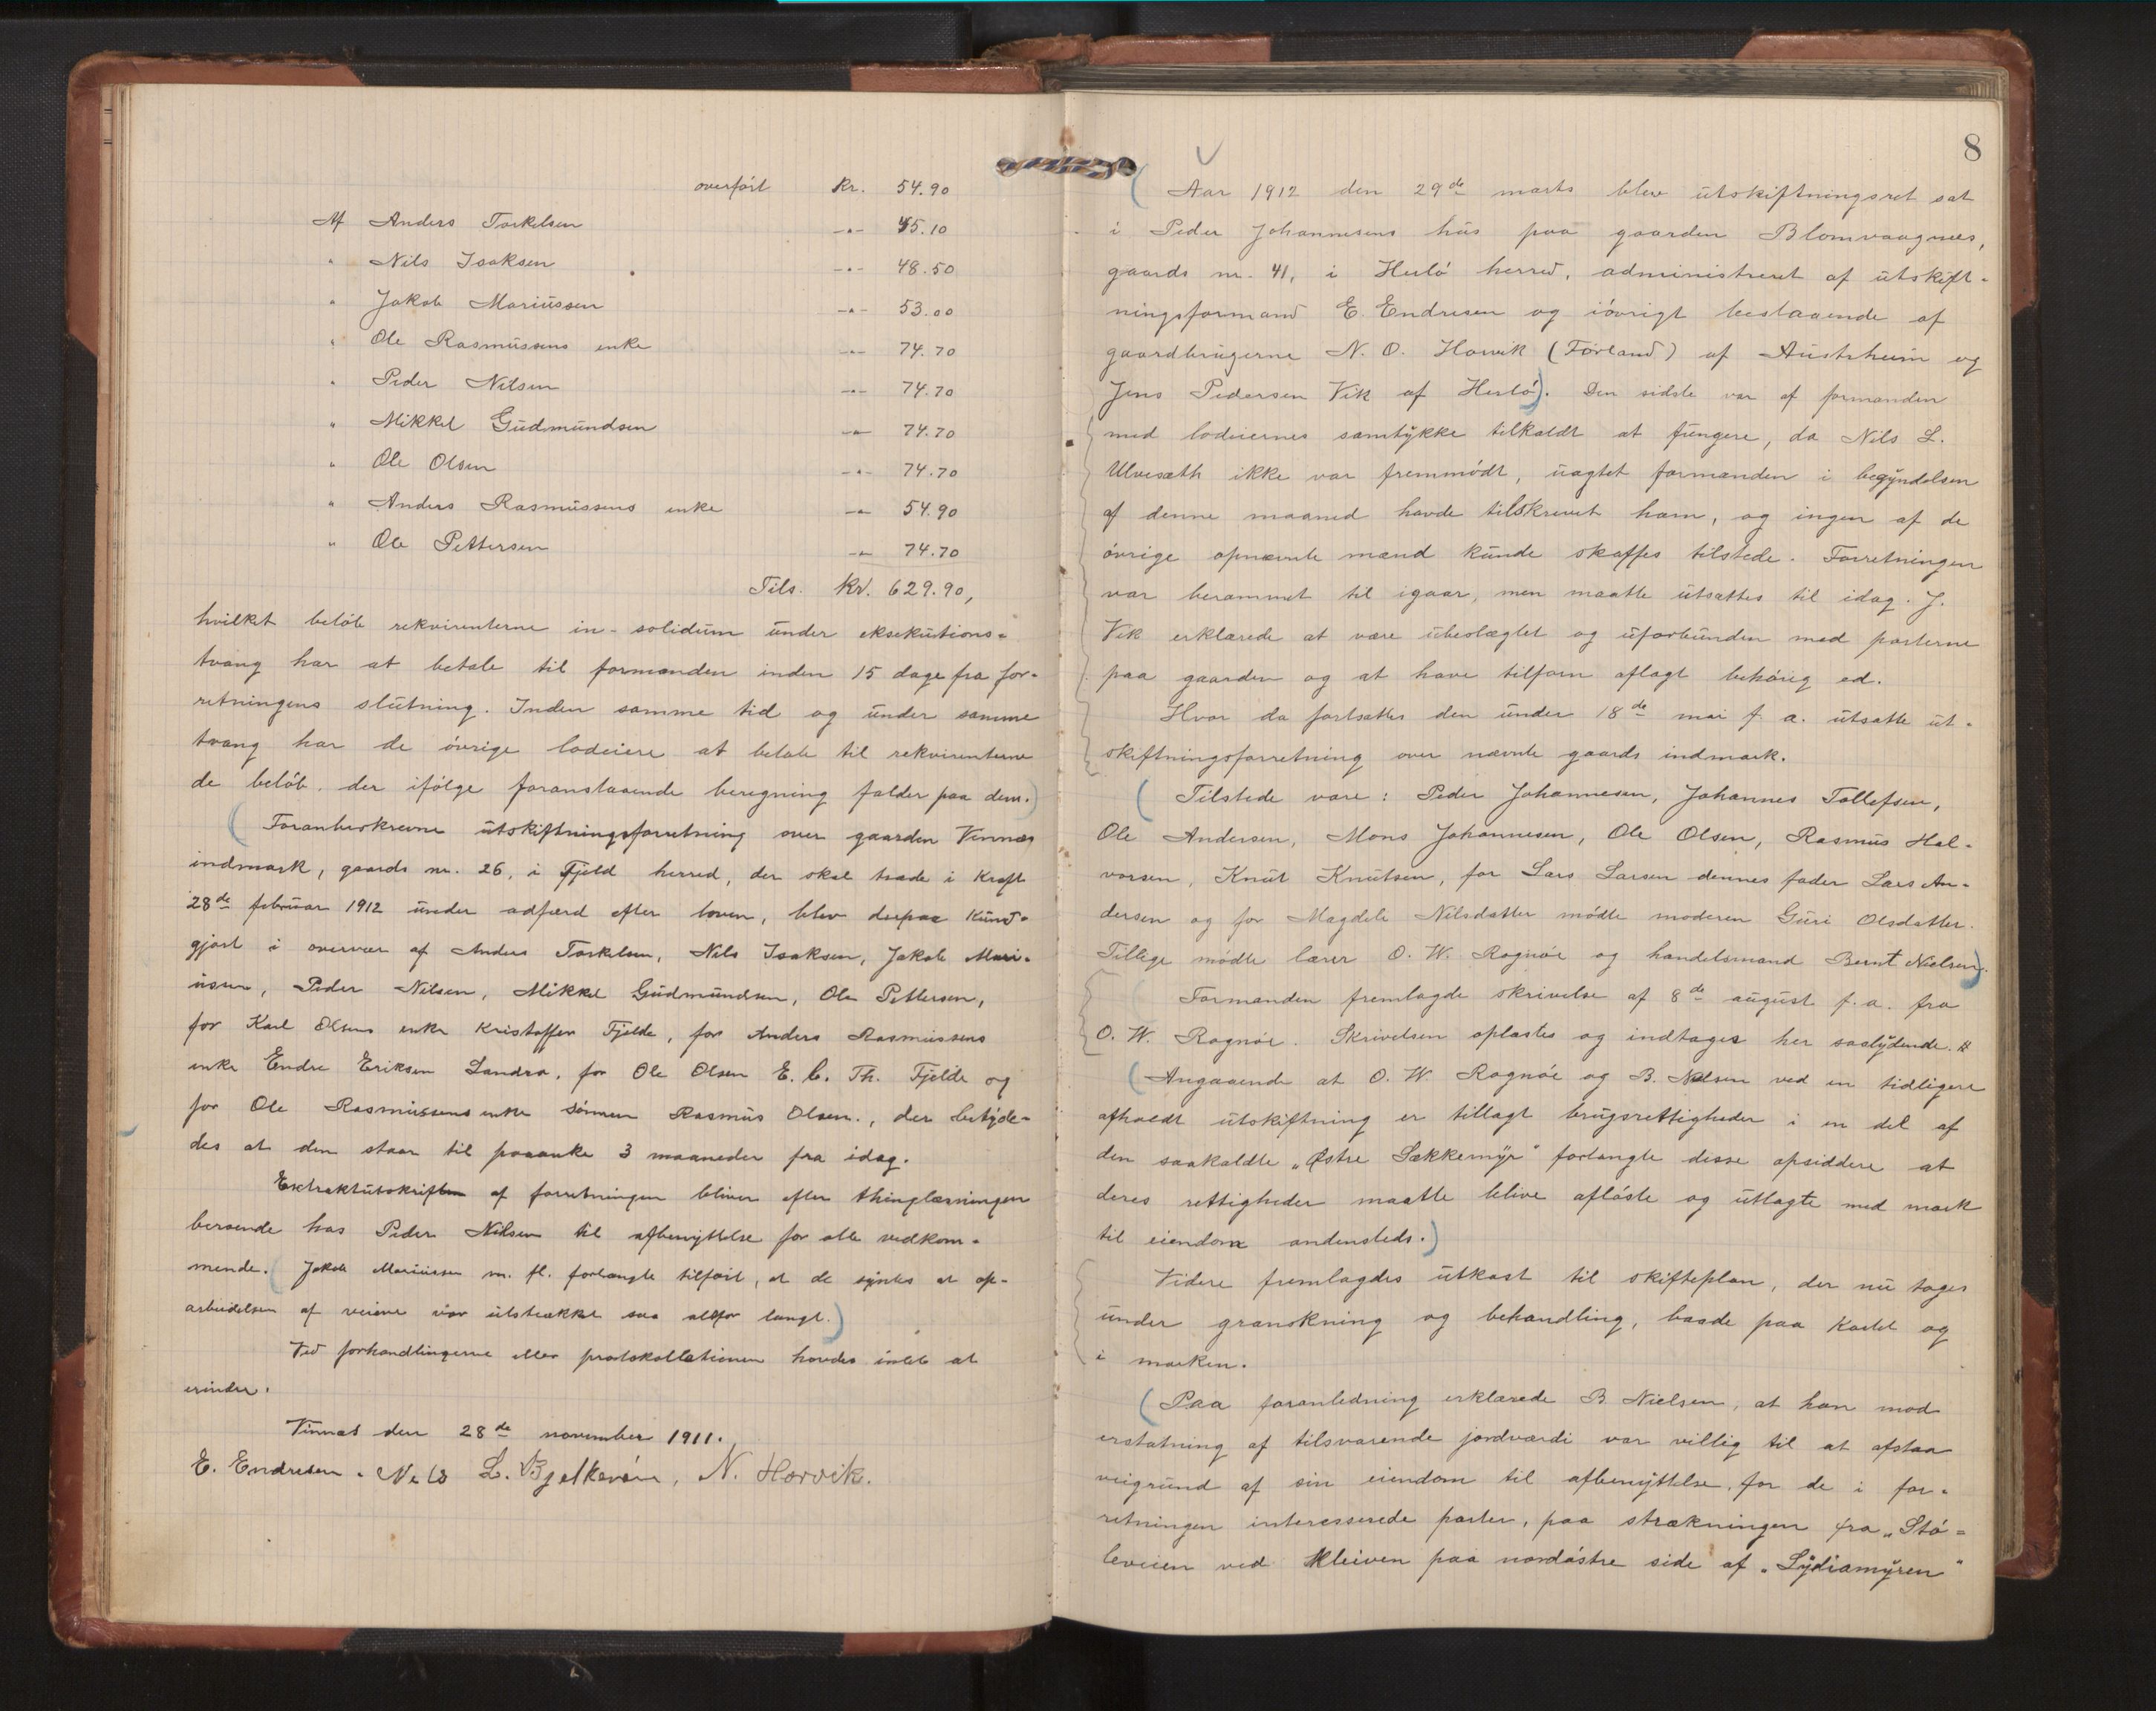 overført Kr. 54.90
Af Anders Torkelsen -"- 45.10
" Nils Isaksen -"- 48.50
" Jakob Mariussen -"- 53.00
" Ole Rasmussens enke -"- 74.70
" Peder Nilsen -"- 74.70
" Mikkel Gudmundsen -"- 74.70
" Ole Olsen -"- 74.70
" Anders Rasmussens enke -"- 54.90
" Ole Pettersen -"- 74.70
Tils. kr. 629.90,
hvilket beløb rekvirenterne in-solidum under eksekutions-
tvang har at betale til formanden inden 15 dage fra for-
retningens slutning. Inden samme tid og under samme
tvang har de øvrige lodeiere at betale til rekvirenterne
de beløb, der ifølge foranstaaende beregning falder paa dem.)
(Foranbeskrevne utskiftningsforretning over gaarden Vinnæs
indmark, gaards nr. 26, i Fjeld herred, der skal træde i kraft
28de februar 1912 under adfærd efter loven, blev derpaa kund-
gjort i overvær af Anders Torkelsen, Nils Isaksen, Jakob Mari-
ussen, Peder Nilsen, Mikkel Gudmundsen, Ole Pettersen,
for Karl Olsens enke Kristoffer Fjelde, for Anders Rasmussens
enke Endre Eriksen Landro, for Ole Olsen E. C. Th. Fjelde og
for Ole Rasmussens enke sønnen Rasmus Olsen., der betyde-
des at den staar til paaanke 3 maaneder fra idag.
Extraktutskriften af forretningen bliver efter thinglæsningen
beroende hos Peder Nilsen til afbenyttelse for alle vedkom-
mende. (Jakob Mariussen m. fl. forlangte tilført, at de syntes at op-
arbeidelsen af veiene var utstrækket saa altfor langt.)
Ved forhandlingerne eller protokollationen havdes intet at
erindre.
Vinnæs den 28de november 1911.
E. Endresen. Nils L. Bjelkerøen, N. Horvik.
8
(Aar 1912 den 29de marts blev utskiftningsret sat
i Peder Johannesens hus paa gaarden Blomvaagnes,
gaards nr. 41, i Herlø herred, administreret af utskift-
ningsformand E. Endresen og iøvrigt bestaaende af
gaardbrugerne N. O. Horvik (Førland) af Austrheim og
Jens Pedersen Vik af Herlø). Den sidste var af formanden
med lodeiernes samtykke tilkaldt at fungere, da Nils L.
Ulvesæth ikke var fremmødt, uagtet formanden i begyndelsen
af denne maaned havde tilskrevet ham, og ingen af de
øvrige opnævnte mænd kunde skaffes tilstede. Forretningen
var berammet til igaar, men maatte utsættes til idag. J.
Vik erklærede at være ubeslægtet og uforbunden med parterne
paa gaarden og at have tilforn aflagt behørig ed.
Hvor da fortsattes den under 18de mai f. a. utsatte ut-
skiftningsforretning over nævnte gaards indmark.
(Tilstede vare: Peder Johannesen, Johannes Tollefsen,
Ole Andersen, Mons Johannesen, Ole Olsen, Rasmus Hal-
vorsen, Knut Knutsen, for Lars Larsen dennes fader Lars An-
dersen og for Magdele Nilsdatter mødte moderen Guri Olsdatter.
Tillige mødte lærer O. W. Rognøe og handelsmand Bernt Nielsen).
Formanden fremlagde skrivelse af 8de august f. a. fra
O. W. Rognøe. Skrivelsen oplæstes og indtages her saalydende.
(Angaaende at O. W. Rognøe og B. Nielsen ved en tidligere
afholdt utskiftning er tillagt brugsrettigheder i en del af
den saakaldte „Østre Sækkemyr" forlangte disse opsiddere at
deres rettigheder maatte blive afløste og utlagte med mark
til eiendom andensteds.)
Videre fremlagdes utkast til skifteplan, der nu tages
under granskning og behandling, baade paa kartet og
i marken.
(Paa foranledning erklærede B. Nielsen, at han mod
erstatning af tilsvarende jordværdi var villig til at afstaa
veigrund af sin eiendom til afbenyttelse for de i for-
retningen interesserede parter, paa strækningen fra „Stø-
leveien ved Kleiven paa nordøstre side af „Lydiamyren"